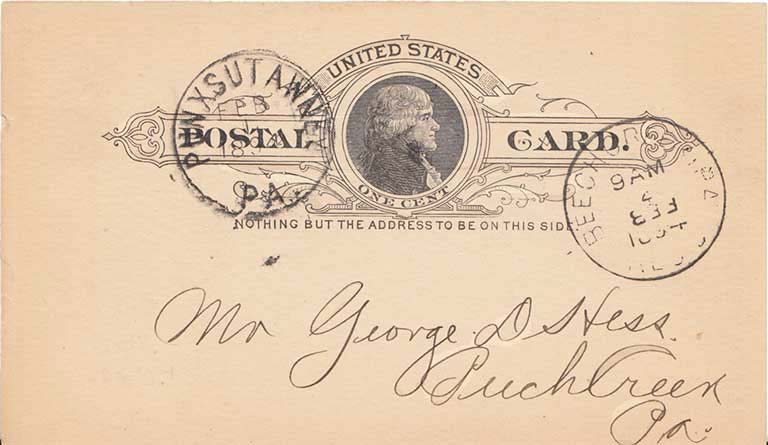 UNITED STATES
POSTAL CARD.
ONE CENT
NOTHING BUT THE ADDRESS TO BE ON THIS SIDE.
PUNXSUTAWNEY
FEB
PA.
BEECH
9AM
4
FEB
Mr George D Hess.
Beech Creek
Pa.